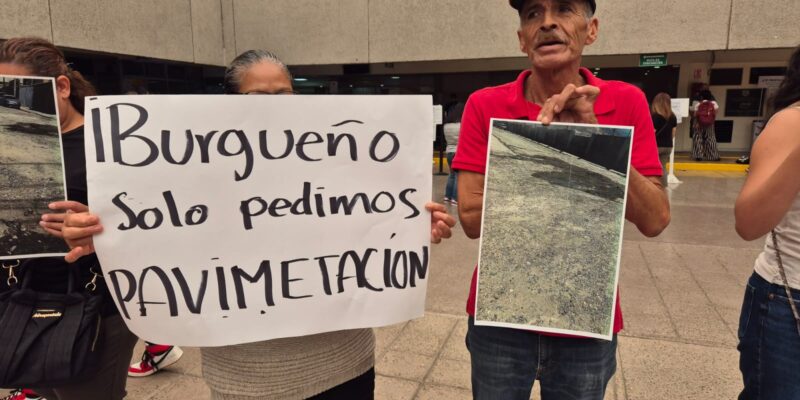 ¡Burgueño
Solo pedimos
PAVIMETACIÓN